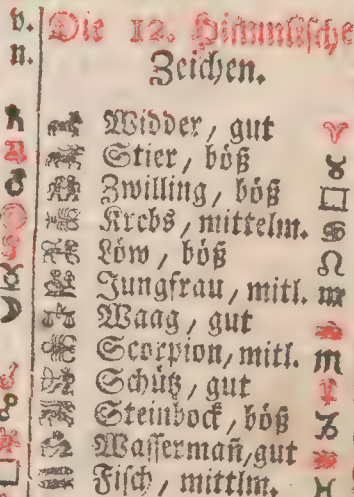 v.
n.
Die 12. Himmlische
Zeichen.
Widder, gut
Stier, böß
Zwilling, böß
Krebs, mittelm.
Löw, böß
Jungfrau, mitl.
Waag, gut
Scorpion, mitl.
Schütz, gut
Steinbock, böß
Wassermañ, gut
Fisch, mittlm.